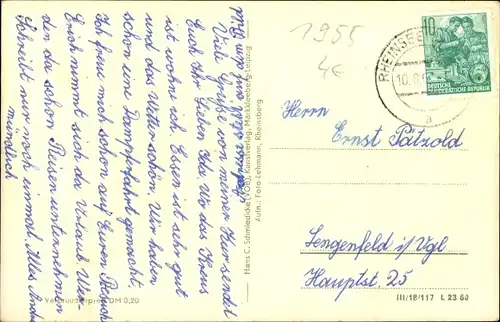 Viele Grüße von meiner Kur sendet
Euch Ihr Lieben Ilse. Wo das Kreuz
ist wohne ich. Essen ist sehr gut
und das Wetter schön. Wir haben
schon Dampferfahrt gemacht.
Ich freue mich schon auf Euren Besuch
Erich nimmt sich da Urlaub. Wer-
den da schon Reisen unternehmen
Schreibt nur noch einmal. Alles Andre
mündlich
Hans C. Schmiedicke (VOB), Kunstverlag, Markkleeberg-Leipzig
Aufn.: Foto Lehmann, Rheinsberg
Verbraucherpreis DM 0,20
1955
4€
RHEINSBE
10.
a
10
DEUTSCHE
DEMOKRATISCHE REPUBLIK
Herrn
Ernst Pätzold
Lengenfeld i/Vgl
Hauptst. 25
III/18/117 L 23.60